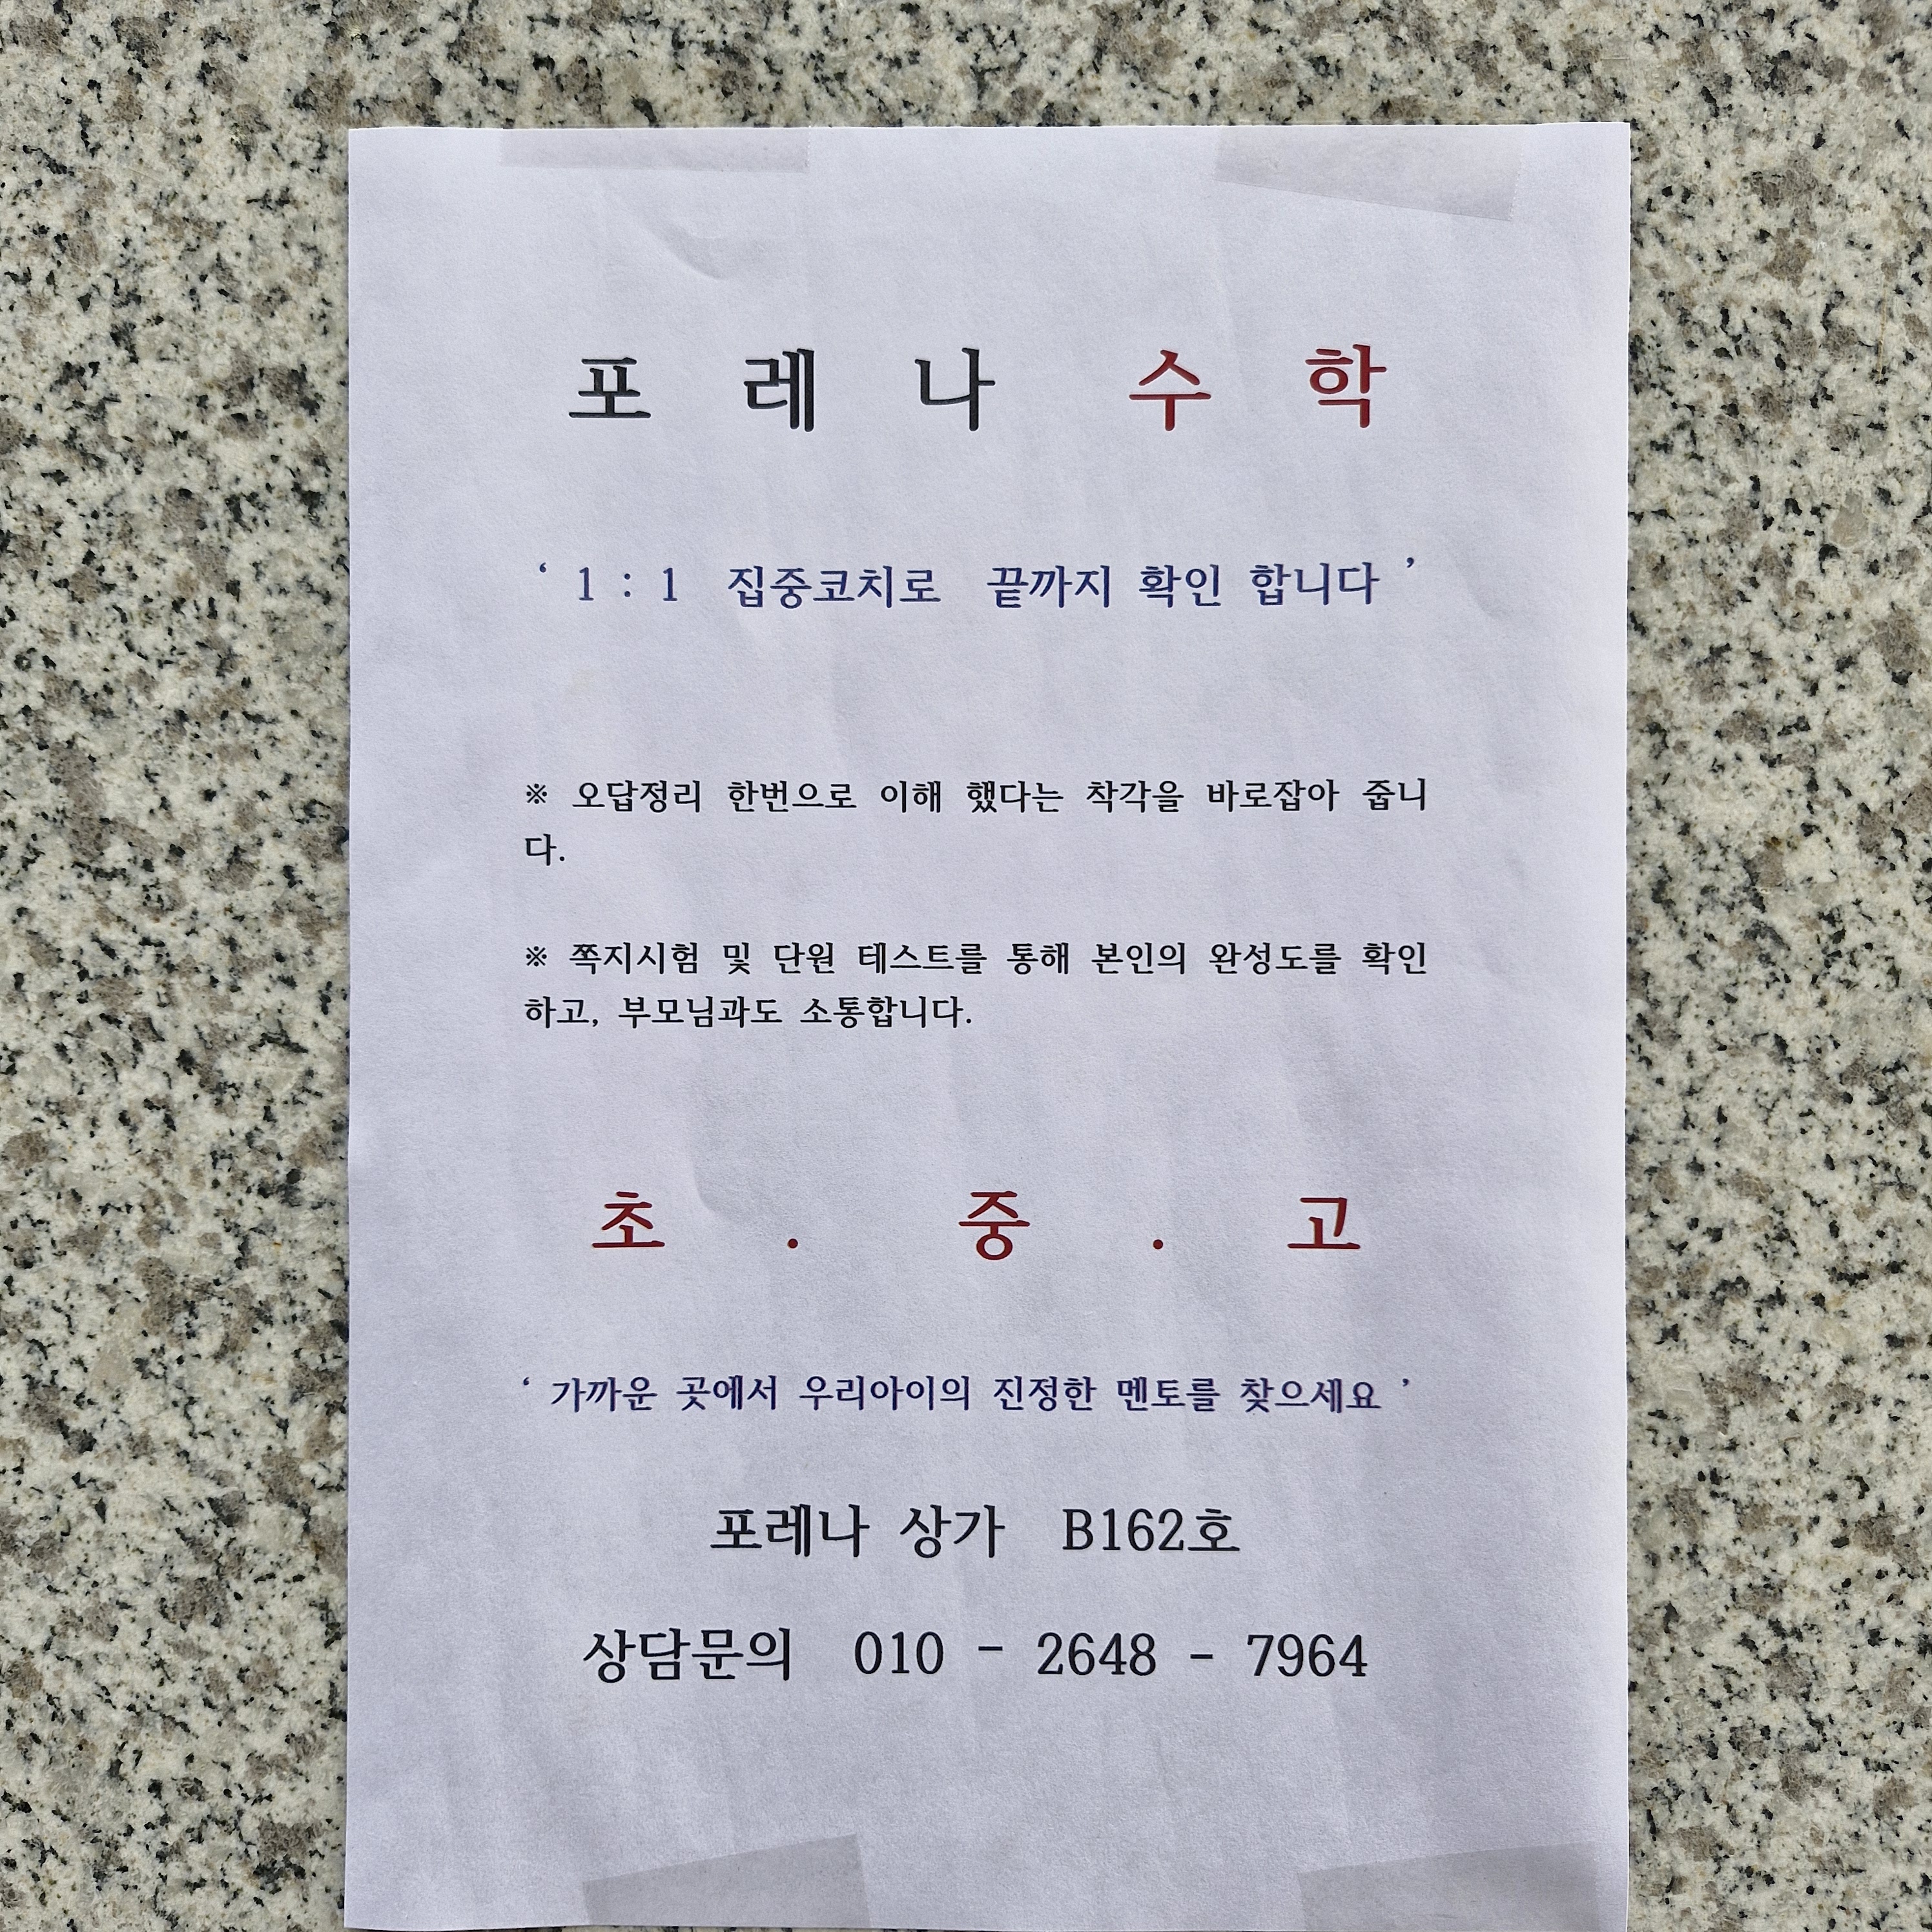 포 레 나 수 학
‘ 1 : 1 집중코치로 끝까지 확인 합니다 ’
※ 오답정리 한번으로 이해 했다는 착각을 바로잡아 줍니
다.
※ 쪽지시험 및 단원 테스트를 통해 본인의 완성도를 확인
하고, 부모님과도 소통합니다.
초 . 중 . 고
‘ 가까운 곳에서 우리아이의 진정한 멘토를 찾으세요 ’
포레나 상가 B162호
상담문의 010 - 2648 - 7964